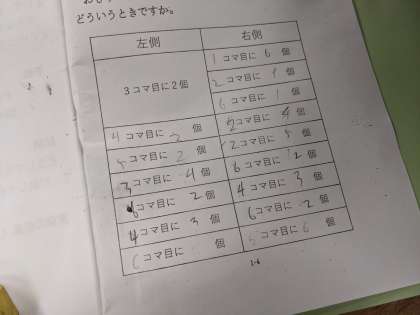 どういうときですか。
左側 右側
3コマ目に2個
1コマ目に6個
2コマ目に 個
6コマ目に1個
4コマ目に2個
2コマ目に 個
5コマ目に2個
2コマ目に5個
3コマ目に4個
6コマ目に2個
6コマ目に2個
4コマ目に3個
4コマ目に3個
6コマ目に2個
6コマ目に 個
コマ目に6個
1-6